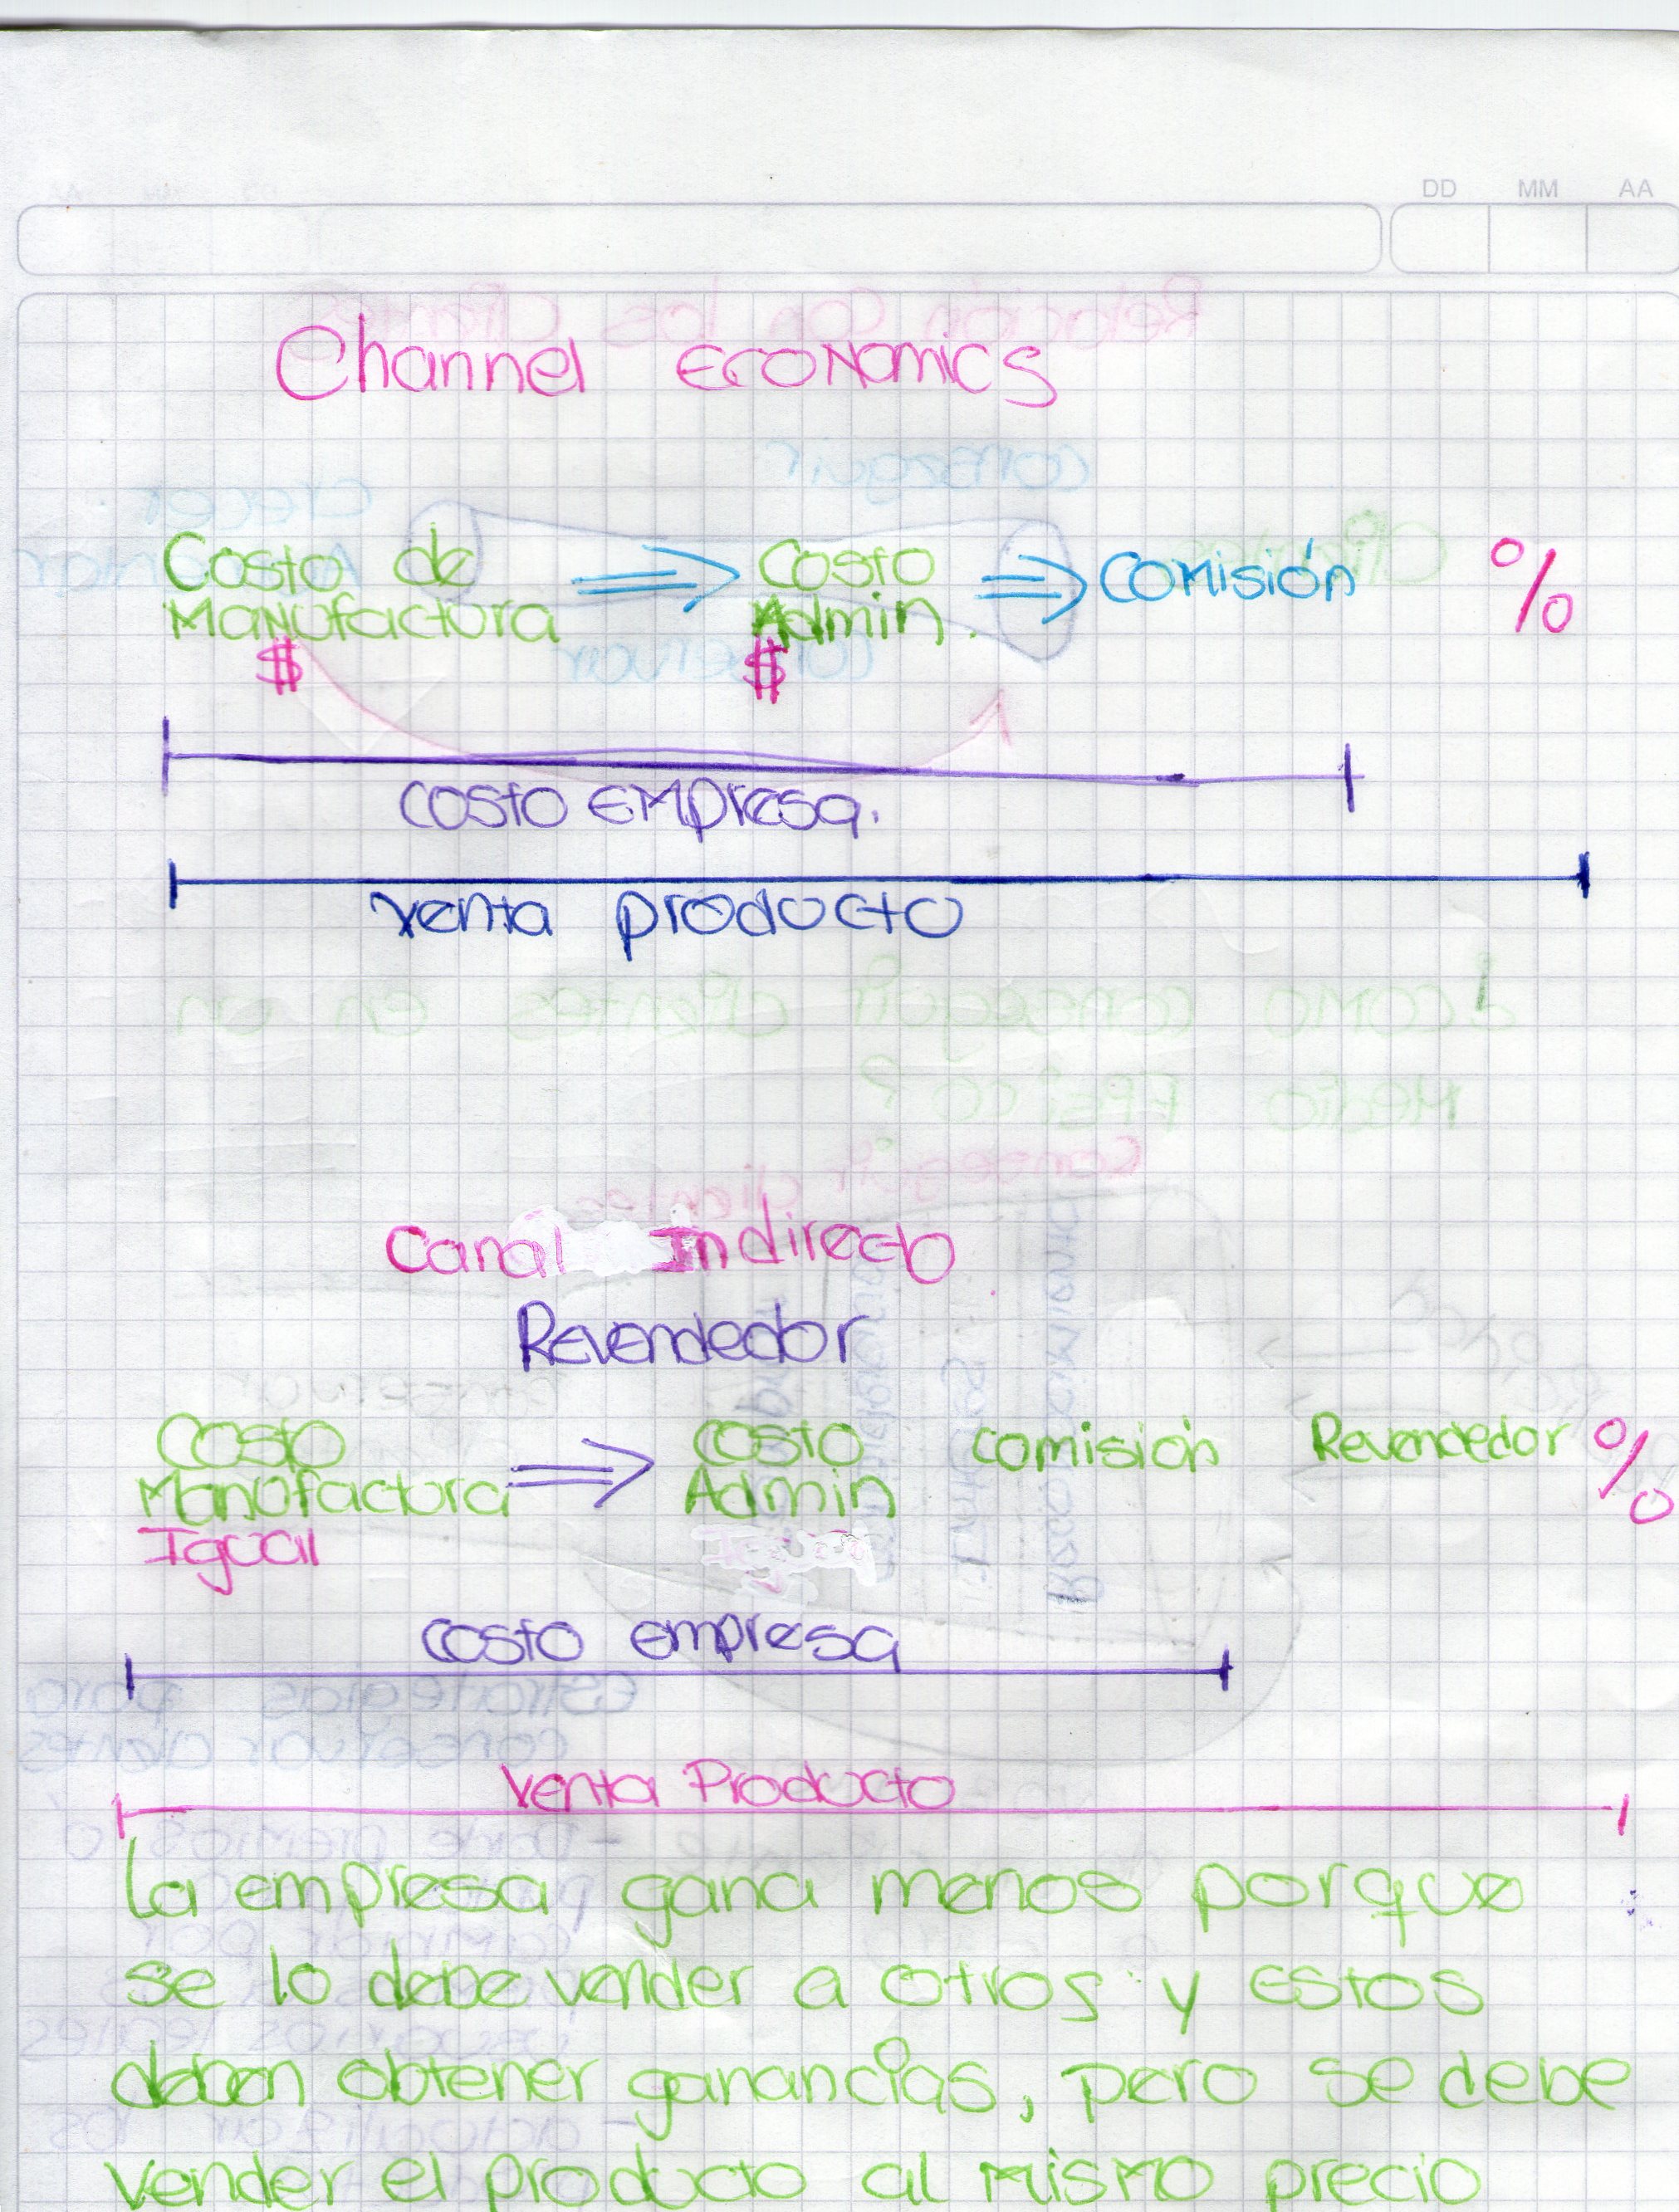 DD MM AA
Channel Economics
Costo de Manufactura $ ⇒ Costo Admin. $ ⇒ Comisión %
costo Empresa.
venta producto
Canal Indirecto
Revendedor
Costo Manufactura Igual ⇒ Costo Admin comisión Revendedor %
costo empresa
Venta Producto
La empresa gana menos porque
se lo debe vender a otros y Estos
deben obtener ganancias, pero se debe
vender el producto al mismo precio